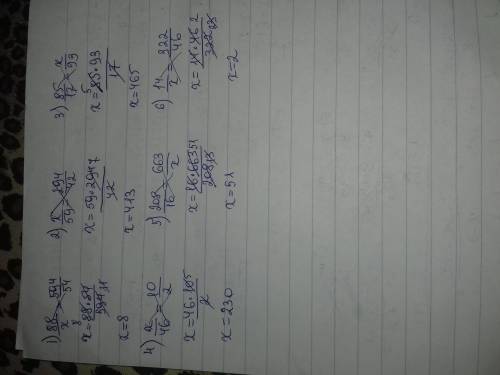 1) 88/x = 594/54
x = 88·54/594
x = 8
2) x/59 = 294/42
x = 59·294 7/42
x = 413
3) 85/17 = x/93
x = 5 85·93/17
x = 465
4) x/46 = 10/2
x = 46·10 5/2
x = 230
5) 208/16 = 663/x
x = 16·663 51/208 13
x = 51
6) 14/x = 322/46
x = 14·46 2/322 23
x = 2